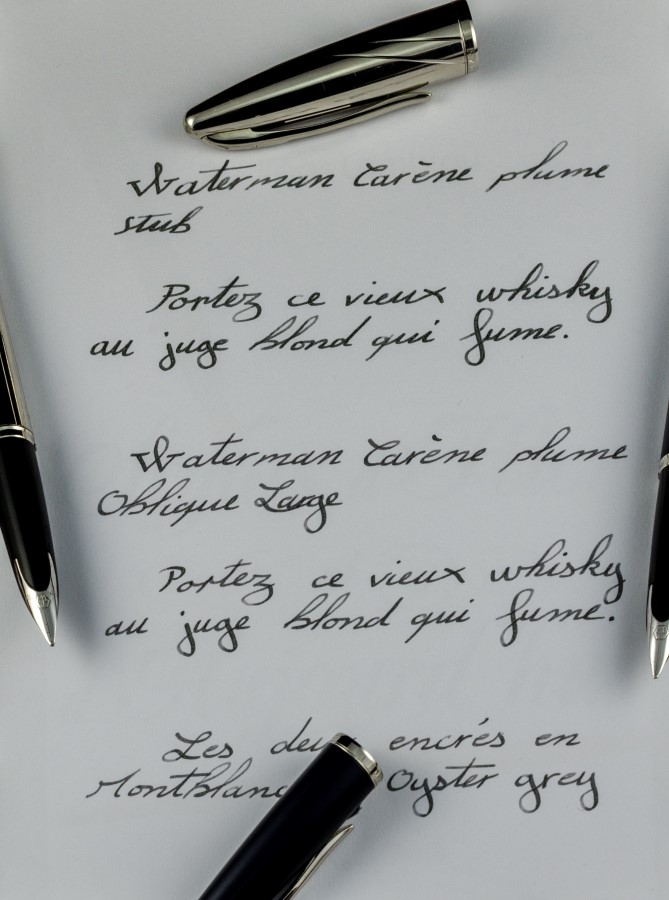 Waterman Carène plume
stub
Portez ce vieux whisky
au juge blond qui fume.
Waterman Carène plume
Oblique Large
Portez ce vieux whisky
au juge blond qui fume.
Les deux encrés en
Montblanc Oyster grey